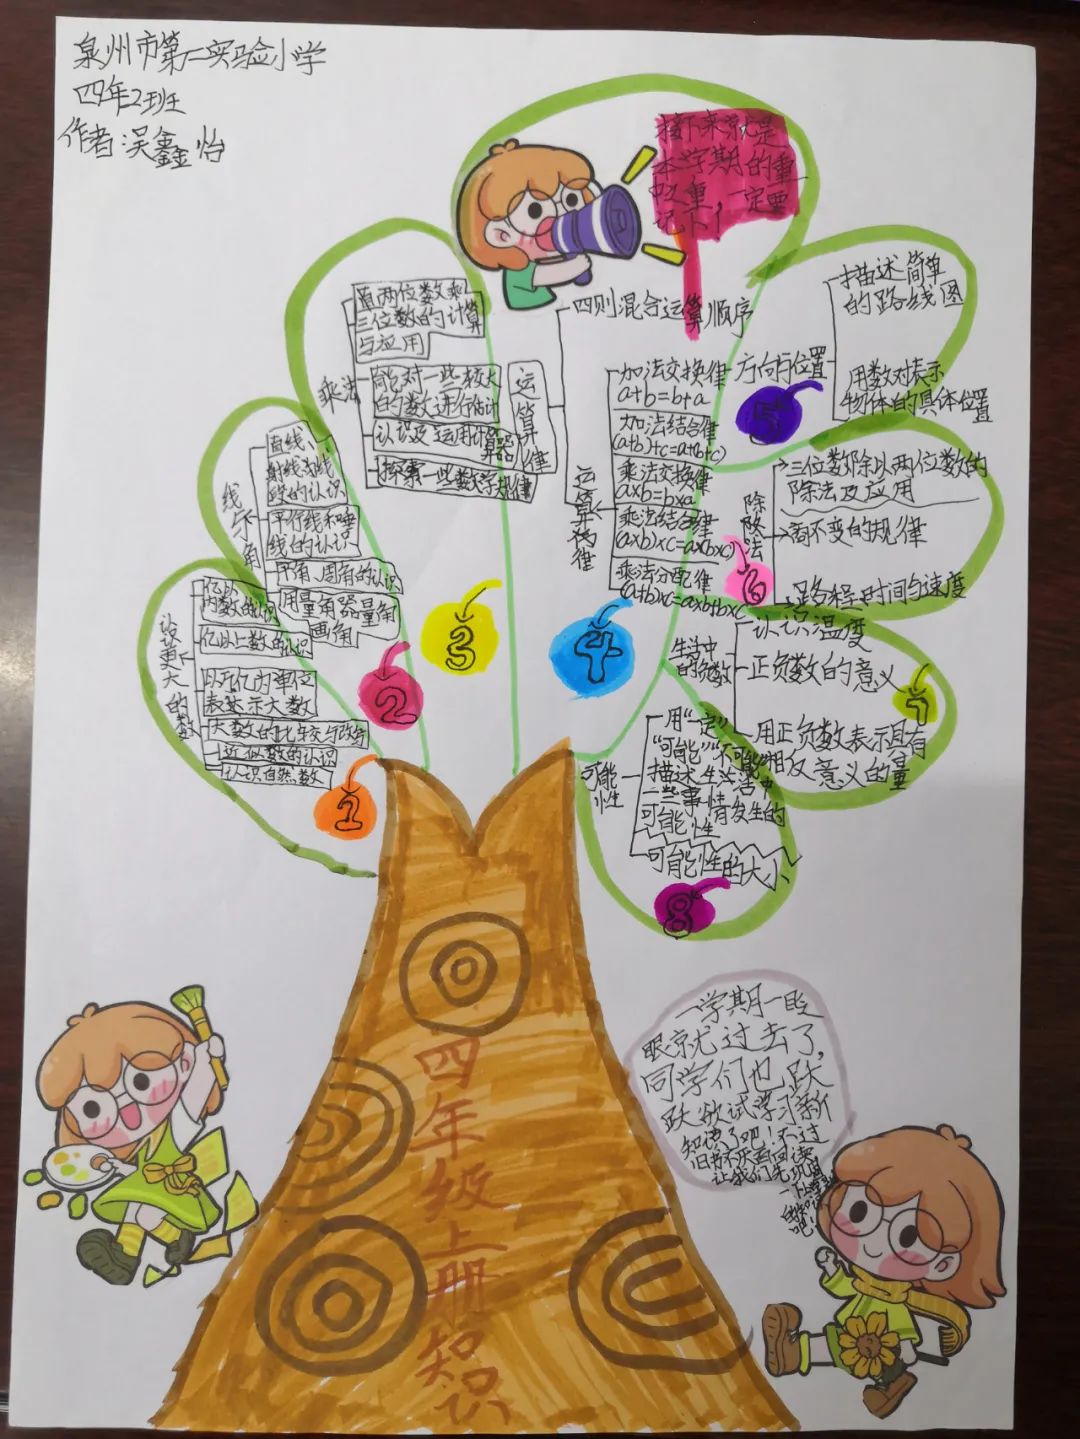 泉州市第一实验小学
四年2班
作者:吴鑫怡
接下来就是
本学期的重
中之重,一定要
记下!
认识更大的数
亿以
内数的认识
亿以上数的认识
以万亿为单位
表示大数
大数的比较与改写
近似数的认识
认识自然数
1
线与角
直线、
射线与线
段的认识
平行线和垂
线的认识
平角、周角的认识
用量角器量角
画角
2
乘法
直两位数乘
三位数的计算
与应用
能对一些较大
的数进行估计
认识及运用计算器
探索一些数学规律
3
运算律
四则混合运算顺序
运算律
加法交换律
a+b=b+a
加法结合律
(a+b)+c=a+(b+c)
乘法交换律
a×b=b×a
乘法结合律
(a×b)×c=a×(b×c)
乘法分配律
(a+b)×c=a×b+b×c
4
方向与位置
描述简单
的路线图
用数对表示
物体的具体位置
5
除法
三位数除以两位数的
除法及应用
商不变的规律
路程、时间与速度
6
生活中
的负数
认识温度
正负数的意义
用正负数表示具有
相反意义的量
7
可能
性
用“一定”
“可能”“不可能”
描述生活中
一些事情发生的
可能性
可能性的大小
8
四年级上册知识
一学期一眨
眼就过去了,
同学们也跃
跃欲试学习新
知识了吧!不过